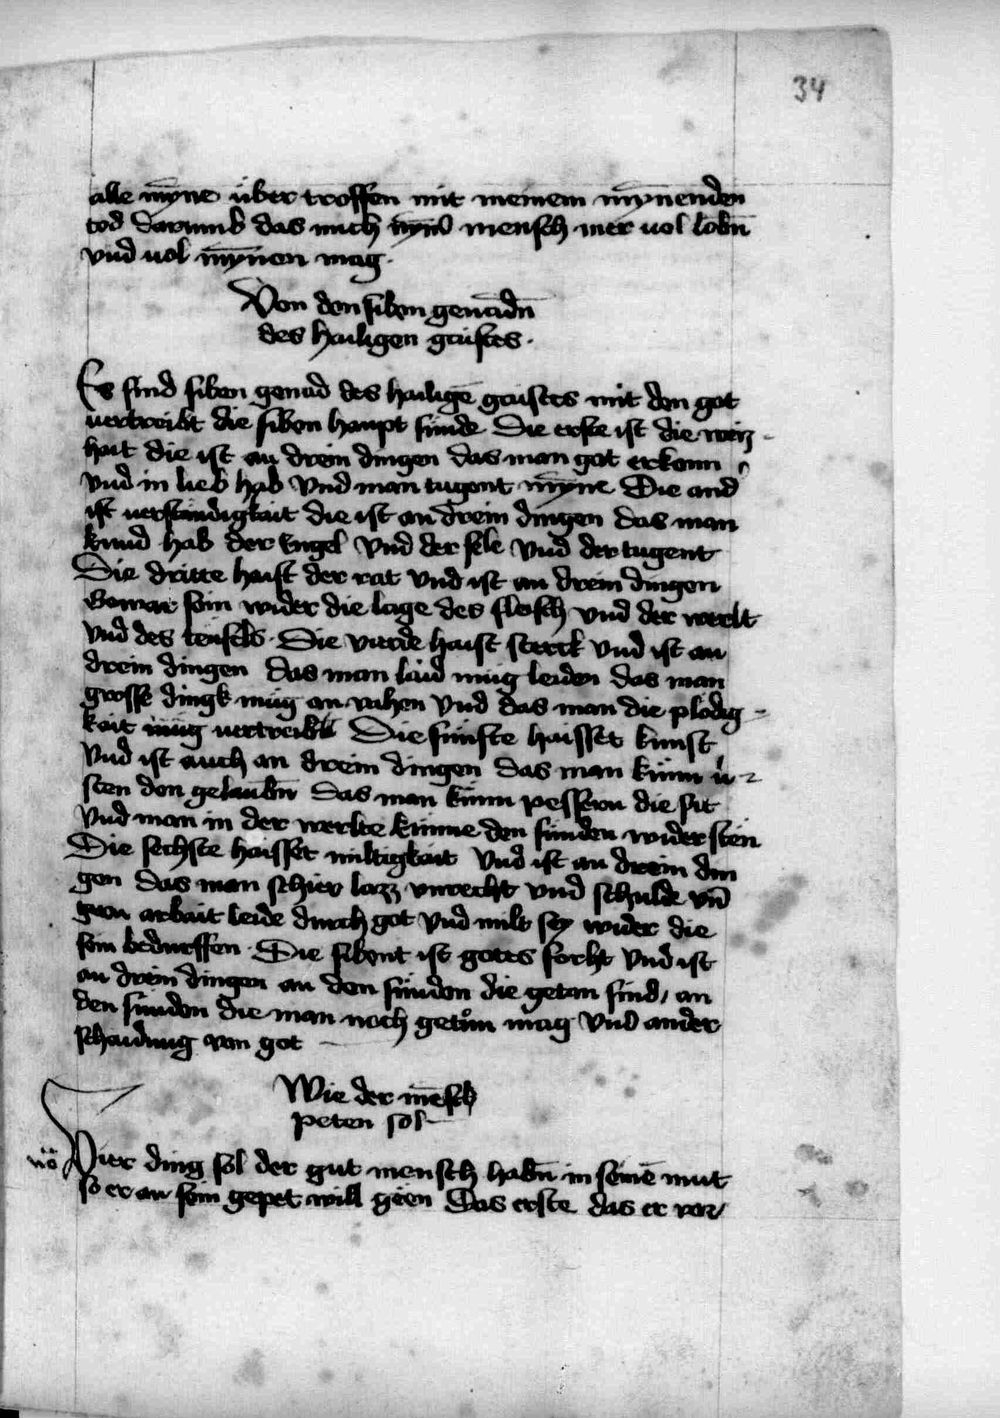 34
alle mӯne über troffen mit meinem mӯnenden
tod darumb das mich nӯmd mensch mer uol lobn̄
vnd uol mӯnen mag.
Von den siben genadn̄
des hailigen gaistes.
Es sind siben genad des hailigē gaistes mit den got
uertreibt die siben haupt sünde Die erste ist die weiz-
hait die ist an drein dingen das man got erkenn
vnd in lieb hab Vnd man tugent mӯne Die and'
ist uerständigkait die ist an drein dingen das man
kund hab der Engel Vnd der sele Vnd der tugent
Die dritte haist der rat Vnd ist an drein dingen
Bewar sein wider die lage des fleisch Vnd der werlt
Vnd des teüfels. Die vierde haist sterck Vnd ist an
drein dingen das man laid müg leiden das man
grosse dingk müg an vahen Vnd das man die plödig-
kait müg uertreibn Die fünfte haisset kunst
Vnd ist auch an drein dingen das man künn
sten den gelaubn̄ Das man künn pessern die sit
Vnd man in der werlte künne den sünden wider sten
Die sechste haisset miltigkait Vnd ist an drein din
gen das man schier lazz vnrecht vnd schulde vn̄
arbait leide durch got Vnd milt sey wider die
sein bedurffen. Die sibent ist gottes forht Vnd ist
an drein dingen an den sünden die getan sind, an
den sünden die man noch getůn mag Vnd an der
schaidung von got
Wie der mēsch
peten sol
Vier ding sol der gut mensch habn̄ in seinē mut
so er an sein gepet will geen Das erste das er vor